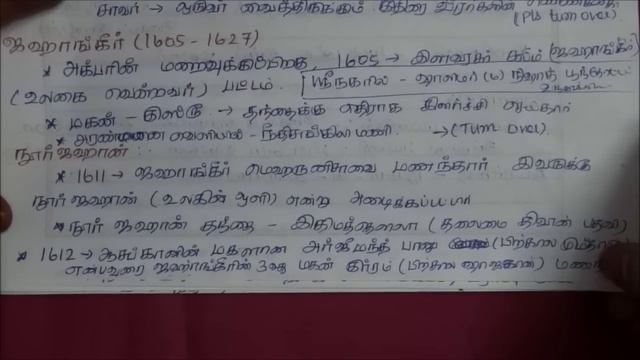 சாவர் → ஒருவர் வைத்திருக்கும் குதிரை வீரர்களின்
(Pls turn over)
ஜஹாங்கீர் (1605 - 1627)
* அக்பரின் மறைவுக்குபிறகு, 1605 → இளவரசர் சலீம் (ஜஹாங்கீர்
(உலகை வென்றவர்) பட்டம். ஸ்ரீநகரில் - ஷாலிமர் (ம) நிஷாத் பூந்தோட்டம்
* மகன் - குஸ்ரூ → தந்தைக்கு எதிராக கிளர்ச்சி செய்தார்
* அரண்மனை வெளியில் - நீதிசங்கிலி மணி → (Turn over)
நூர்ஜஹான் :
* 1611 → ஜஹாங்கீர் மெஹருன்னிசாவை மணந்தார் இவருக்கு
நூர் ஜஹான் (உலகின் ஒளி) என்று அழைக்கப்பட்டார்
* நூர் ஜஹான் தந்தை - இதிமத்உத்தௌலா (தலைமை திவான் பதவி)
* 1612 → ஆசப்கானின் மகளான அர்ஜுமந்த் பானு (பிற்கால
என்பவரை ஜஹாங்கீரின் 3வது மகன் குர்ரம் (பிற்கால ஷாஜகான்)